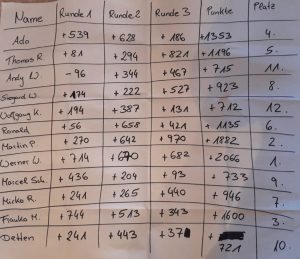 Name Runde 1 Runde 2 Runde 3 Punkte Platz
Ado +539 +628 +186 +1353 4.
Thomas R. +81 +294 +821 +1196 5.
Andy W. -96 +344 +467 +715 11.
Siegurd W. +174 +222 +527 +923 8.
Wolfgang K. +194 +387 +131 +712 12.
Ronald +56 +658 +421 +1135 6.
Martin P. +270 +642 +970 +1882 2.
Werner W. +714 +670 +682 +2066 1.
Marcel Sch. +436 +204 +93 +733 9.
Mirko R. +241 +265 +440 +946 7.
Frauke M. +744 +513 +343 +1600 3.
Detten +241 +443 +37 +
721 10.